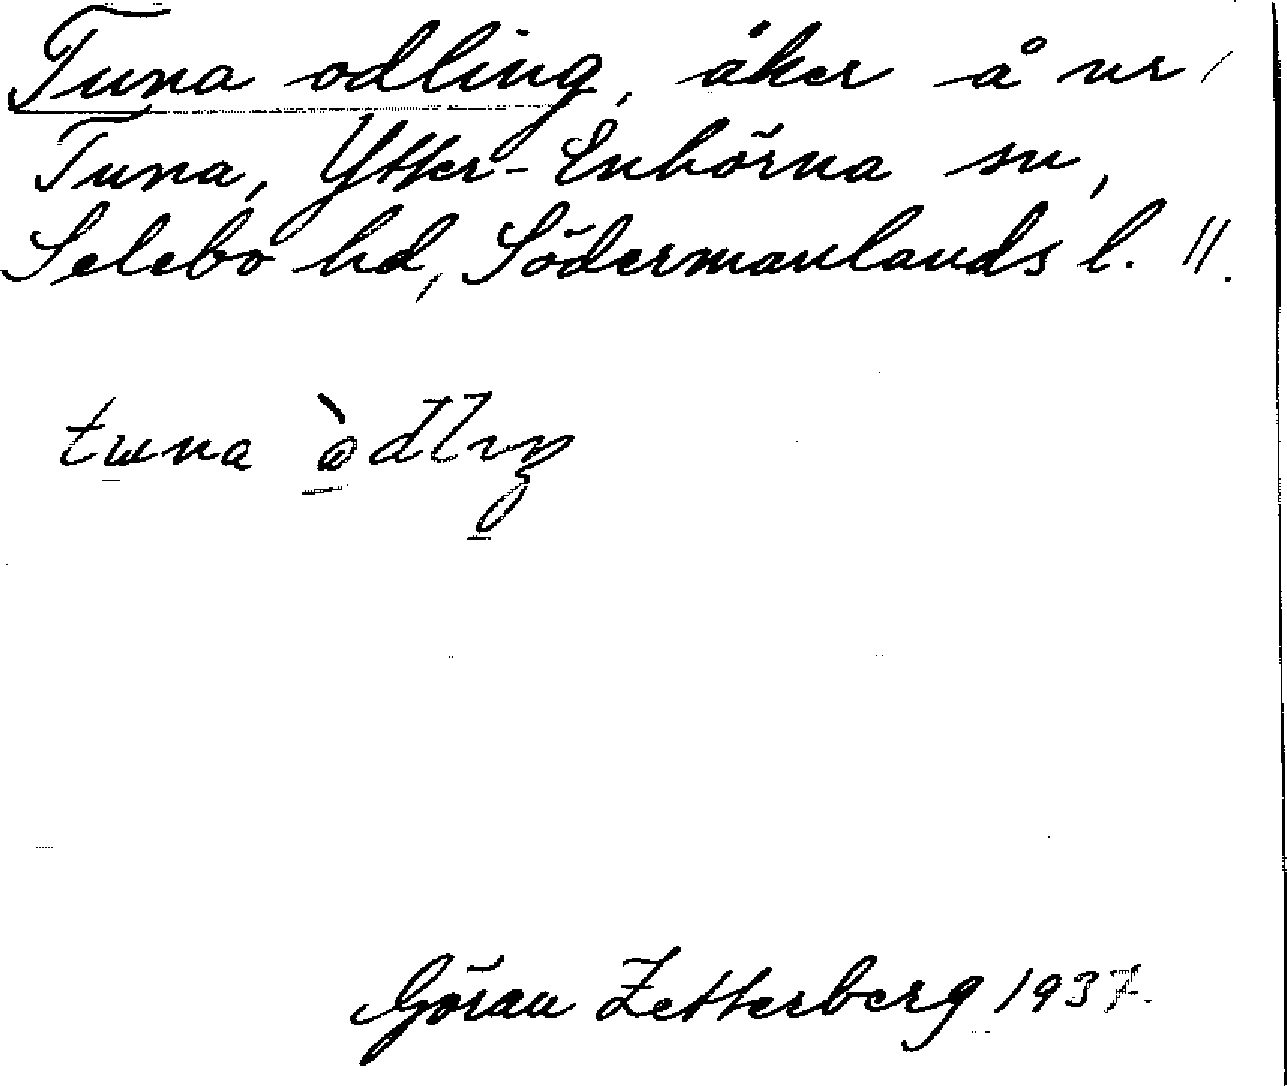 Tuna odling, åker å nr 1
Tuna, Ytter-Enhörna sn,
Selebo hd, Södermanlands l. 11.
tɯna òdlıŋ
Göran Zetterberg 1937.